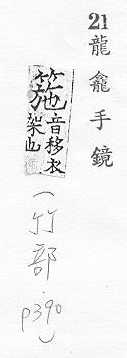 21龍龕手鏡
箷音移衣
架也
(竹部.
p390)